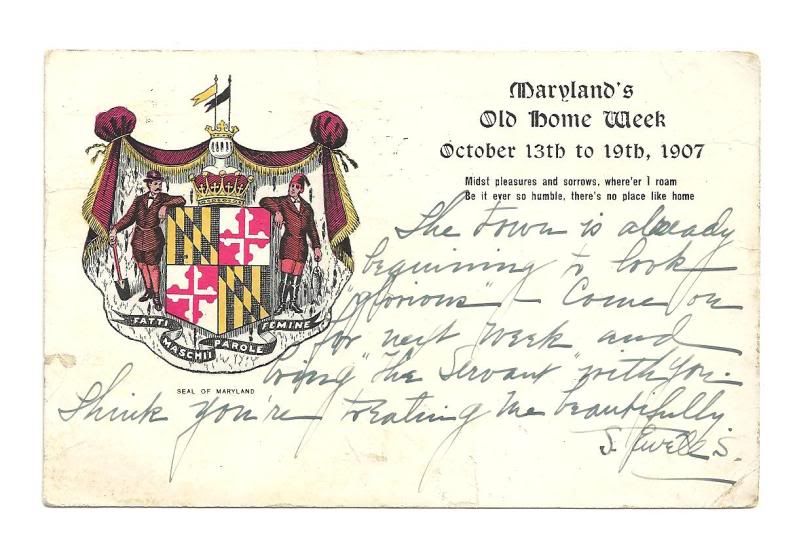 Maryland's
Old Home Week
October 13th to 19th, 1907
Midst pleasures and sorrows, where'er I roam
Be it ever so humble, there's no place like home
The town is already
beginning to look
"glorious" - Come on
for next week and
bring "the Servant" with you.
Think you're treating me beautifully
S. Ewell S.
FATTI MASCHII PAROLE FEMINE
SEAL OF MARYLAND